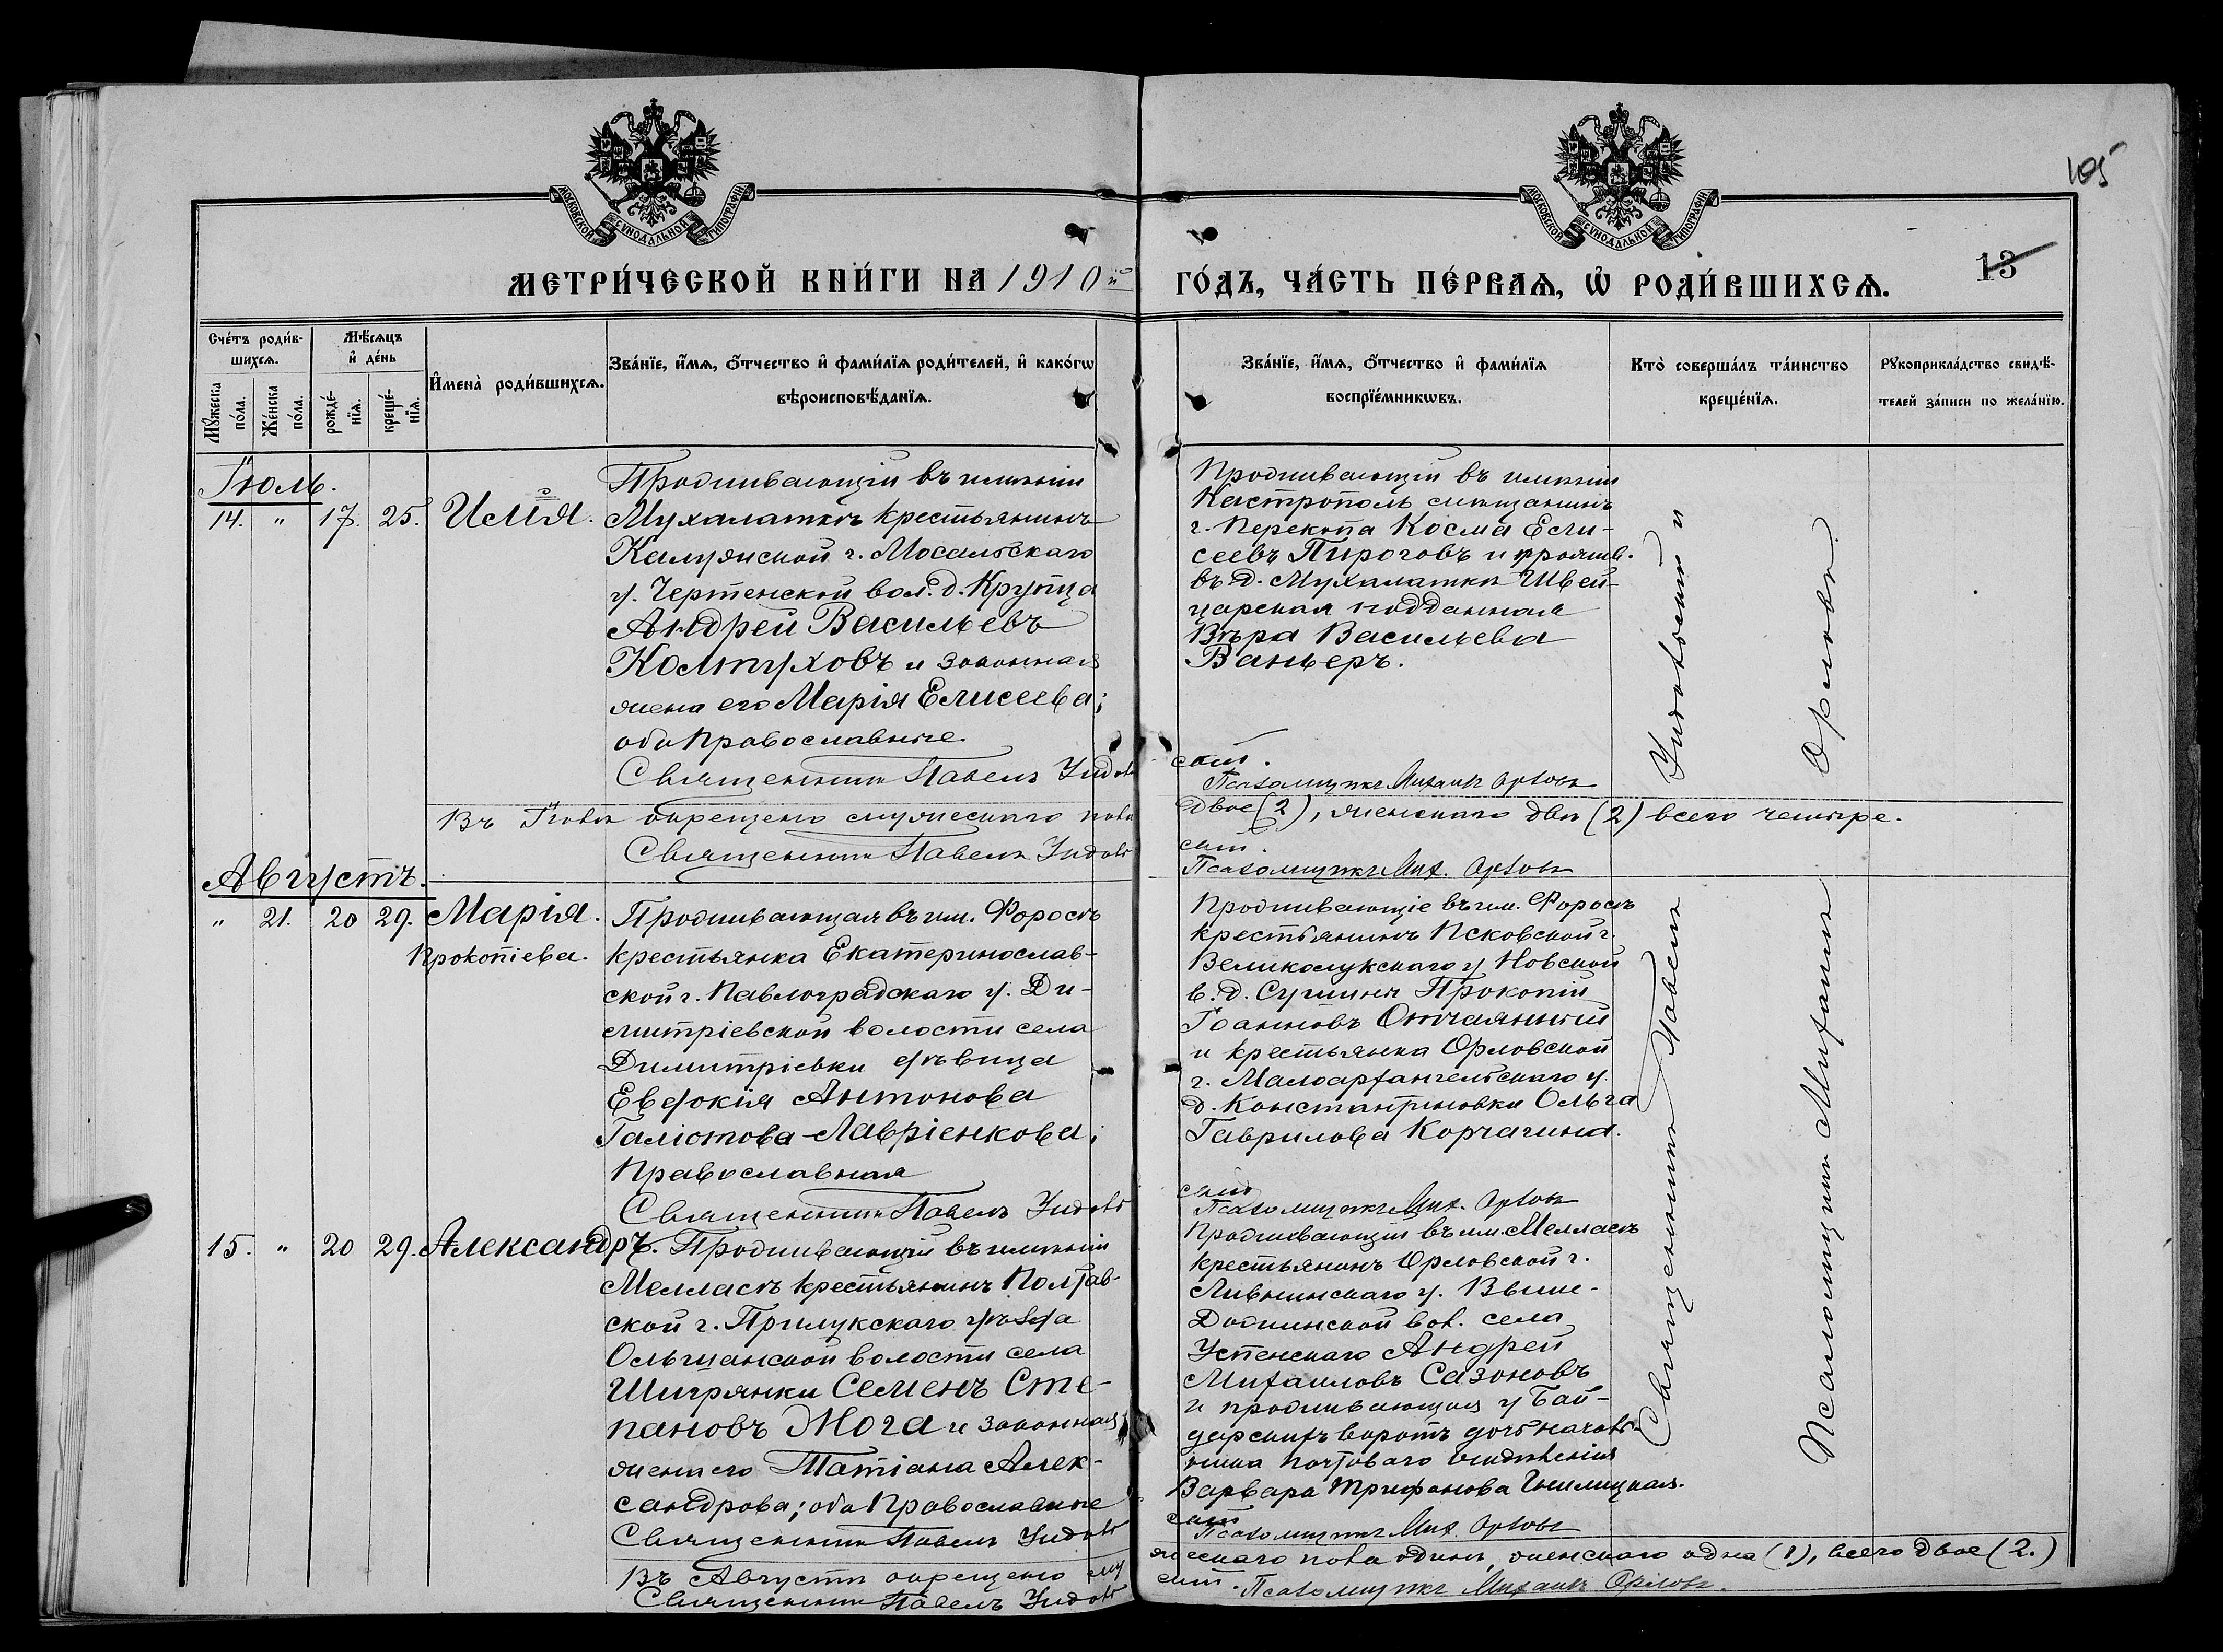 105
МОСКОВСКОЙ СѴНОДАЛЬНОЙ ТИПОГРАФІИ
МОСКОВСКОЙ СѴНОДАЛЬНОЙ ТИПОГРАФІИ
МЕТРИ́ЧЕСКОЙ КНИ́ГИ НА 1910й
ГО́ДЪ, ЧА́СТЬ ПЕ́РВАѦ, Ѽ РОДИ́ВШИХСѦ.
13
Сче́тъ роди́в-
шихсѧ.
Мꙋ́жеска по́ла.
Же́нска по́ла.
Мѣ́сѧцъ
и҆ де́нь
рожде́-
нїѧ.
креще́-
нїѧ.
И҆мена̀ роди́вшихсѧ.
Зва́нїе, и҆́мѧ, ѻ҆́тчество и҆ фами́лїѧ роди́телей, и҆ како́гѡ
вѣроисповѣ́данїѧ.
Зва́нїе, и҆́мѧ, ѻ҆́тчество и҆ фами́лїѧ
воспрїе́мникѡвъ.
Кто̀ соверша́лъ та́инство
креще́нїѧ.
Рꙋкоприкла́дство свидѣ́-
телей за́писи по жела́нїю.
Іюль.
14. " 17. 25. Илія.
Проживающій въ имѣніи
Мухалаткѣ крестьянинъ
Калужской г. Мосальскаго
у. Чертенской вол. д. Крутца
Андрей Васильевъ
Колтуховъ и законная
жена его Марія Елисеева;
оба православные.
Священникъ Павелъ Индов
Проживающій въ имѣніи
Кастрополь мѣщанинъ
г. Перекопа Косма Ели-
сеевъ Пироговъ и прожив.
въ д. Мухалатки Швей-
царская подданная
Вѣра Васильева
Ваньеръ.
скій.
Псаломщикъ Михаилъ Орловъ
Въ Іюлѣ окрещено мужескаго пола
двое (2), женскаго двѣ (2) всего четыре.
Священникъ Павелъ Индов
скій.
Псаломщикъ Мих. Орловъ
Августъ.
" 21. 20 29. Марія
Прокопіева.
Проживающая въ им. Форосъ
крестьянка Екатеринослав-
ской г. Павлоградскаго у. Ди-
митріевской волости села
Димитріевки дѣвица
Евдокія Антонова
Галіотова-Лавріенкова;
Православная
Священникъ Павелъ Индов
Проживающіе въ им. Форосъ
крестьянинъ Псковской г.
Великолукскаго у. Новской
в. д. Сушины Прокопій
Іоанновъ Отчаянный
и крестьянка Орловской
г. Малоархангельскаго у.
д. Константиновки Ольга
Гаврилова Корчагина.
скій
Псаломщикъ Мих. Орловъ
15. " 20 29. Александръ.
Проживающій въ имѣніи
Мелласъ крестьянинъ Полтав-
ской г. Прилукскаго уѣзда
Ольшанской волости села
Шигрянки Семенъ Сте-
пановъ Жога и законная
жена его Татіана Алек-
сандрова; оба православные
Священникъ Павелъ Индов
Проживающій въ им. Мелласъ
крестьянинъ Орловской г.
Ливнинскаго у. Выше-
Должинской вол. села
Успенскаго Андрей
Михаиловъ Сазоновъ
и проживающая у Бай-
дарскихъ воротъ дочь началь-
ника почтоваго отдѣленія
Варвара Трифонова Гнилицкая.
скій
Псаломщикъ Мих. Орловъ
Въ Августѣ окрещено му
жескаго пола одинъ, женскаго одна (1), всего двое (2.)
Священникъ Павелъ Индов
скій. Псаломщикъ Михаилъ Орловъ.
Священникъ Павелъ Индовскій и
Псаломщикъ Михаилъ Орловъ.